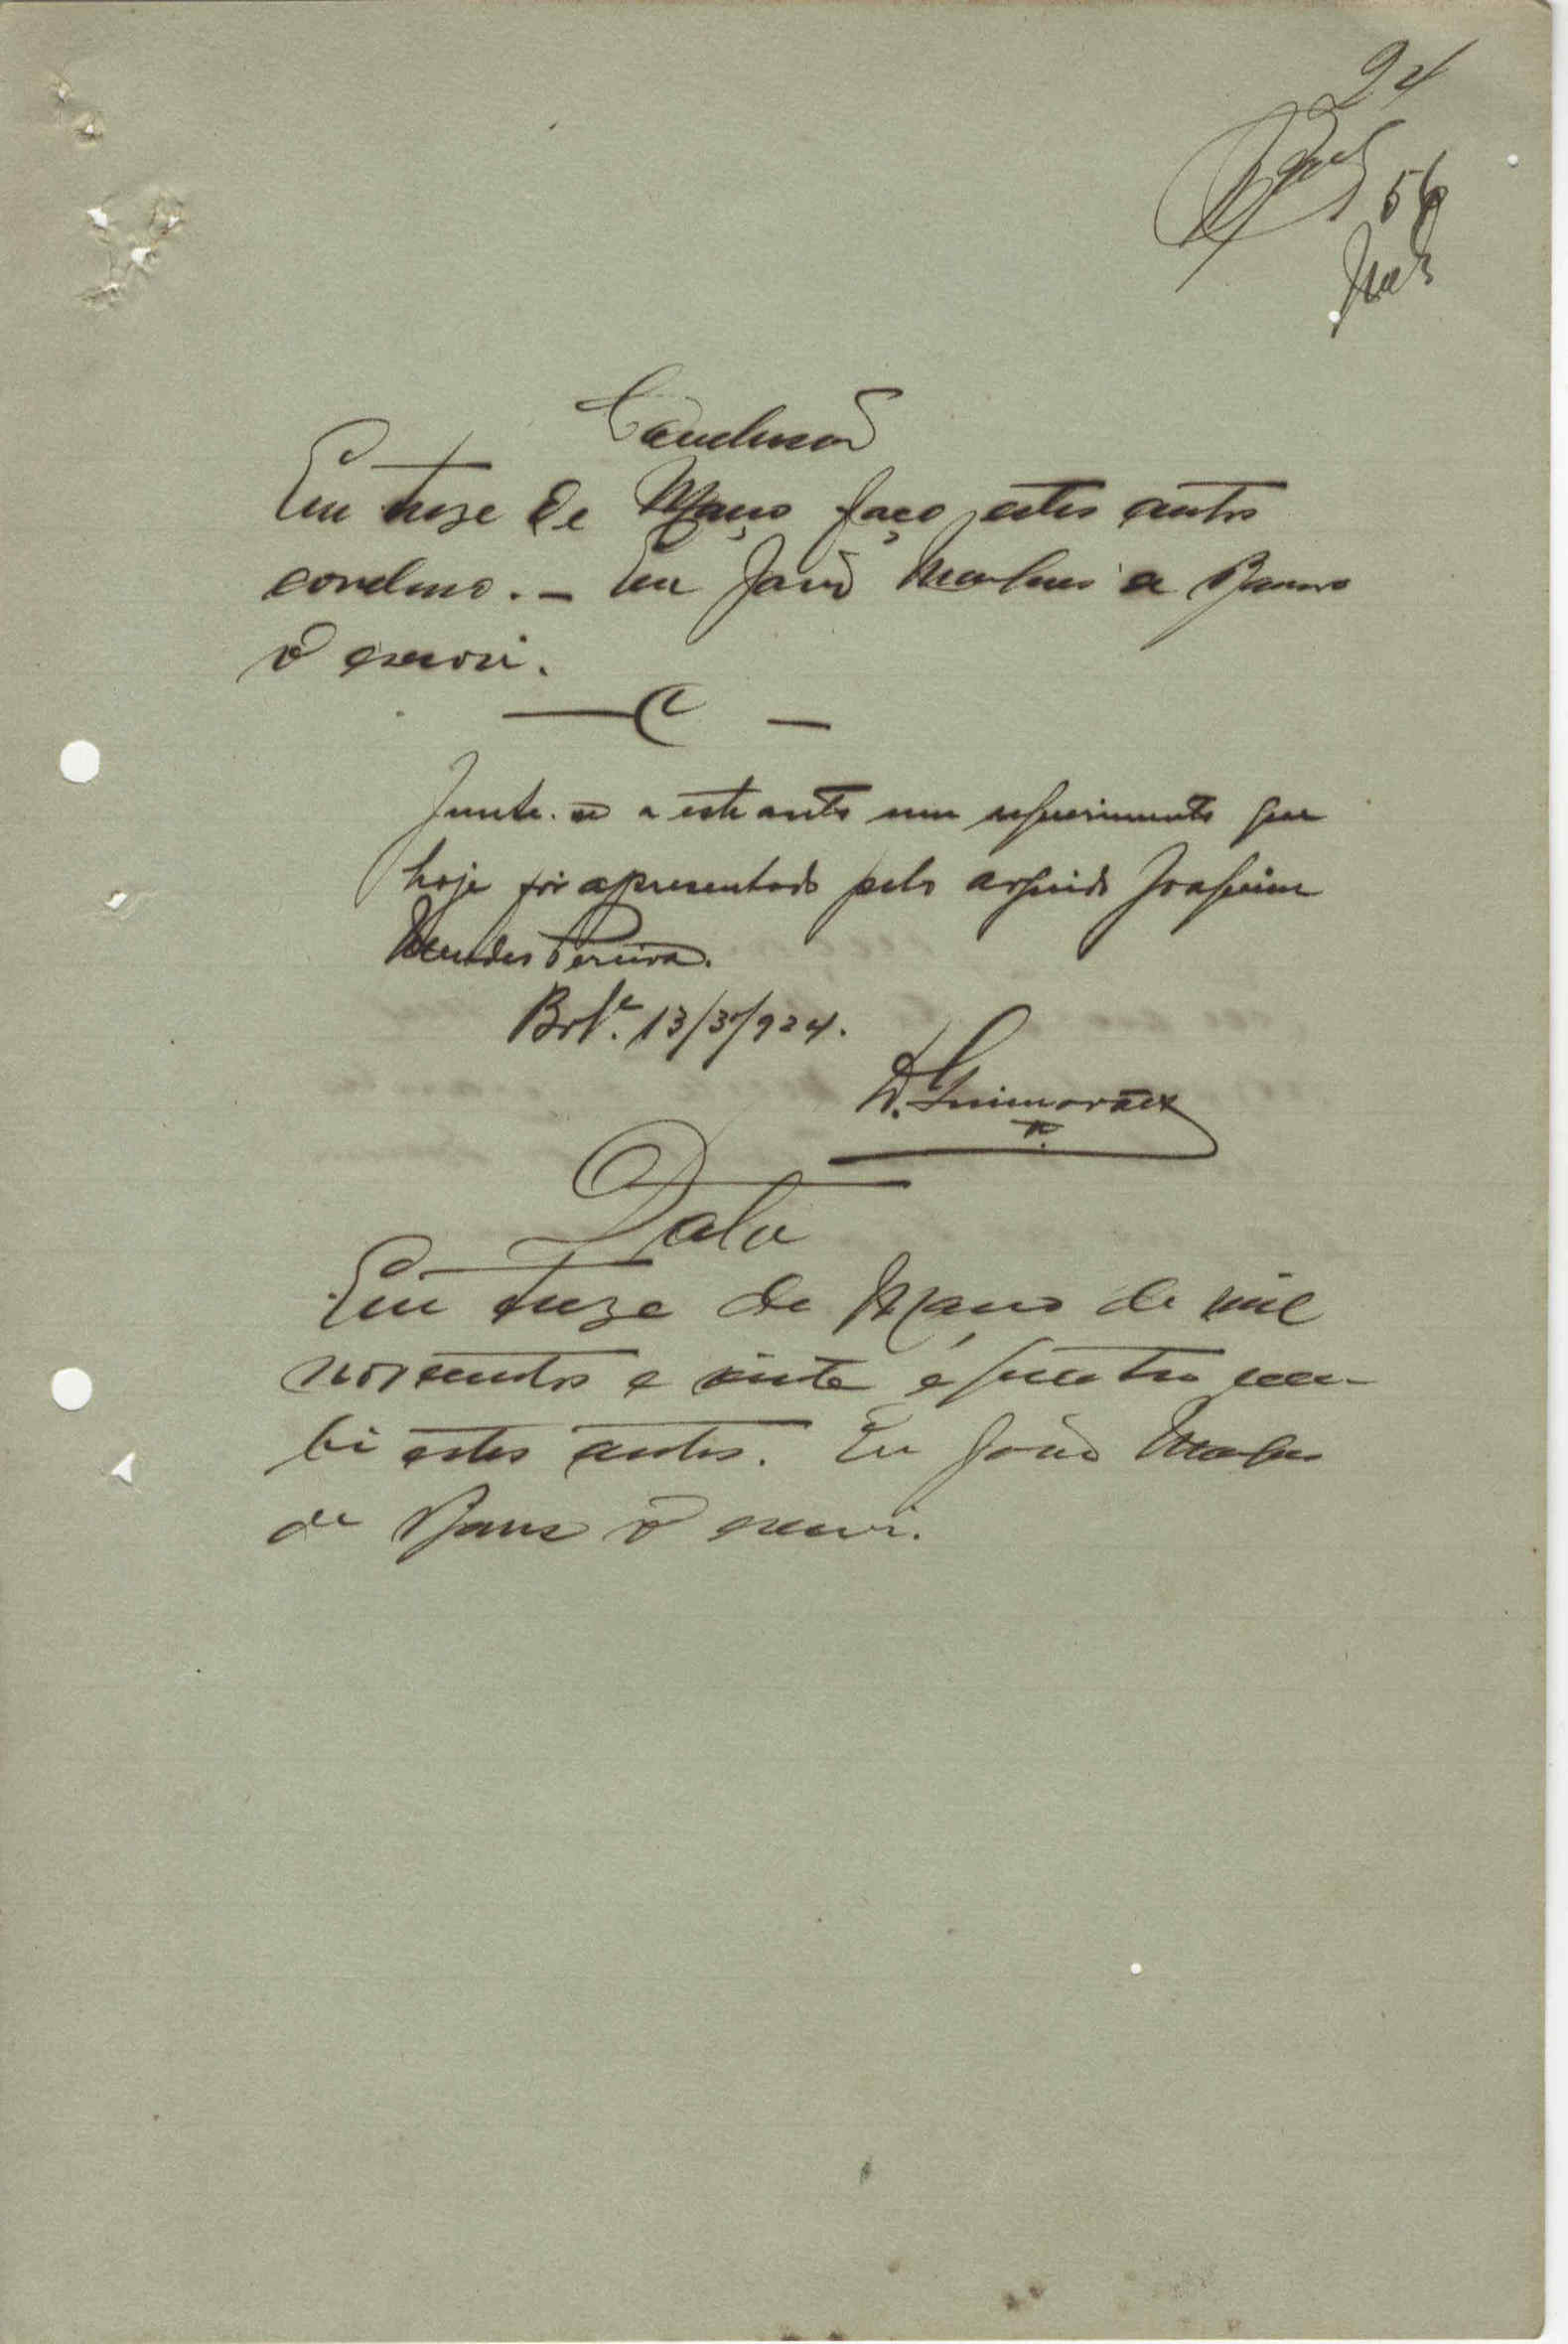 24
56
Conclusão
Em treze de Março faço estes autos
concluso. - Eu João de Barros
o escrevi.
C -
Junte-se a este auto um requerimento que
hoje foi apresentado pelo arguido Joaquim
Mendes Pereira.
13/3/924.
D. Guimarães
Data
Em treze de Março de mil
novecentos e vinte e quatro rece-
bi estes autos. Eu João
de Barros o escrevi.